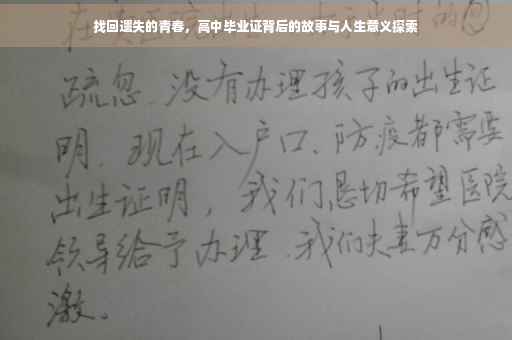 找回遗失的青春，高中毕业证背后的故事与人生意义探索
疏忽、没有办理孩子的出生证
明、现在入户口、防疫都需要
出生证明，我们恳切希望医院
领导给予办理、我们夫妻万分感
激。